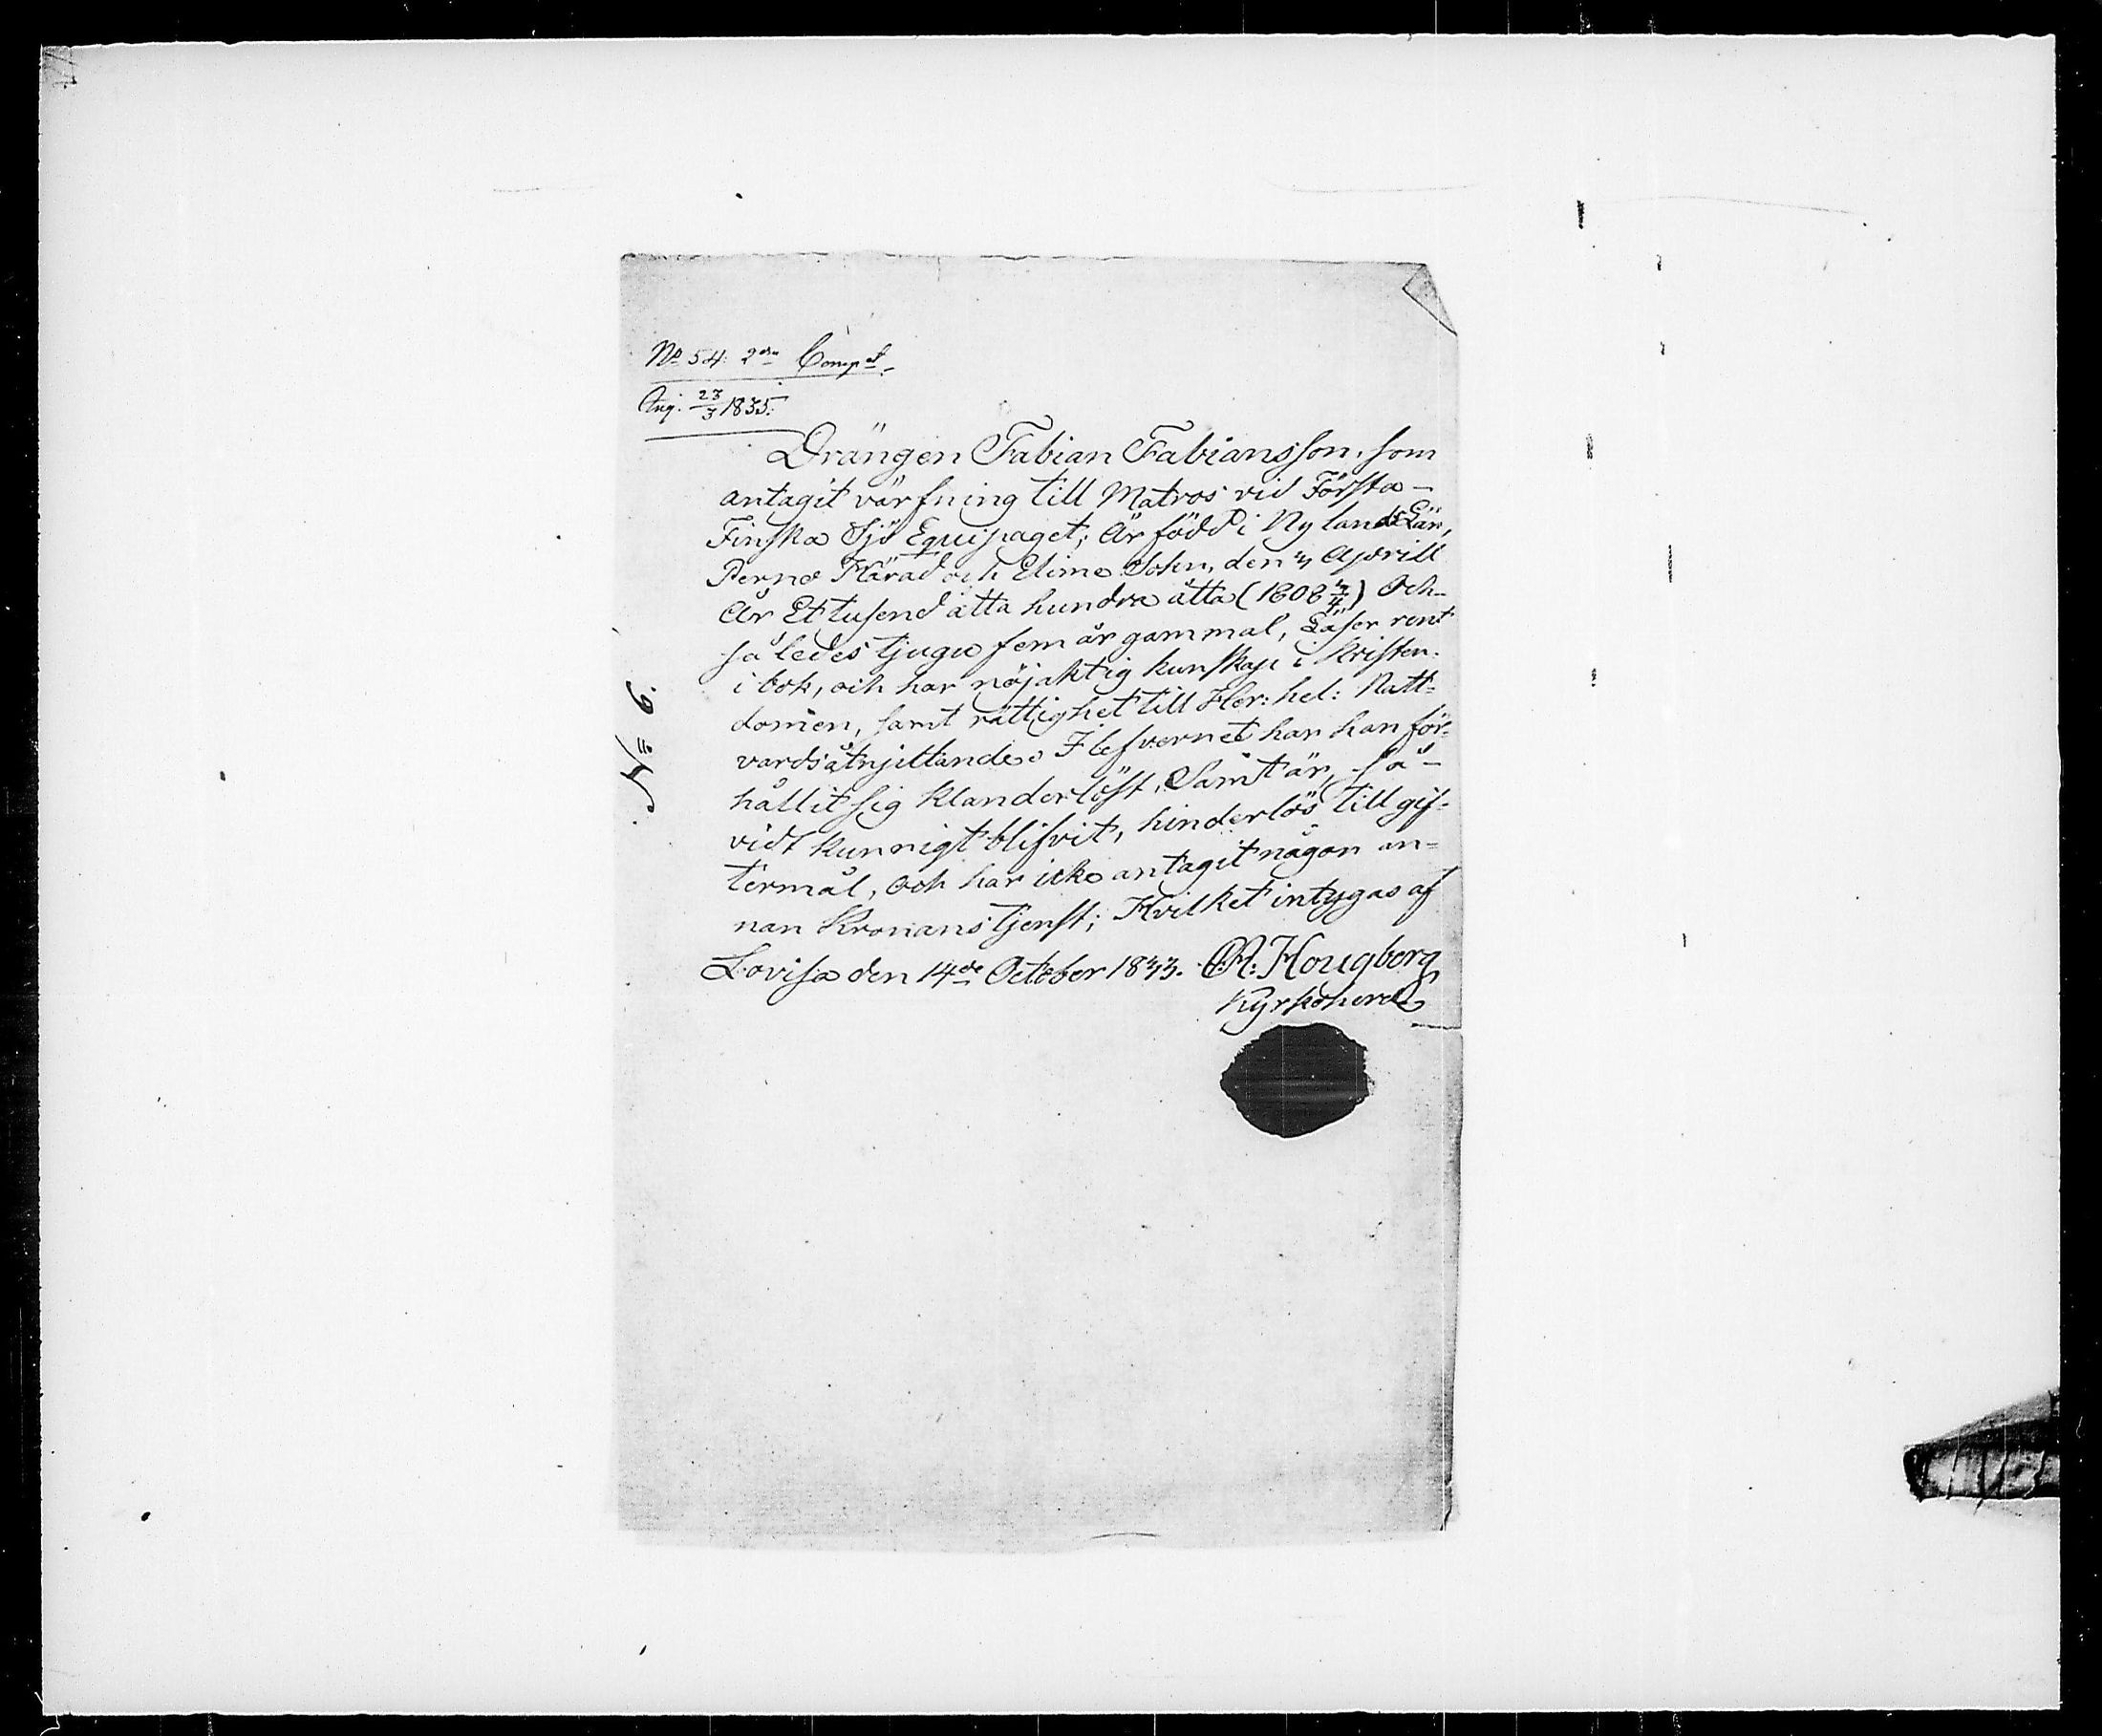 No 54: 2dra Compt.
Ang. 23/3 1835.
Drängen Fabian Fabiansson, som
antagit värfning till Matros vid Första
Finska Sjö Equipaget; är född i Nylands Län,
Perno Härad och Elime Sokn, den 4 Aprill
år Et tusend åtta hundra åtta (1808 4/4) och
således tjugu fem år gammal, Läser rent
i bok, och har nöjaktig kunskap i Kristen-
domen, samt rättighet till Her: hel: Natt-
vards åtnjutande. I lefvernet har han för-
hållit sig klanderlöst, Samt är, så-
vidt kunnigt blifvit, hinderlös till gif-
termål, och har icke antagit någon an-
nan Kronans tjenst; Hvilket intygas af
Lovisa den 14de October 1833. Hougberg
Kyrkoherde
No 6.